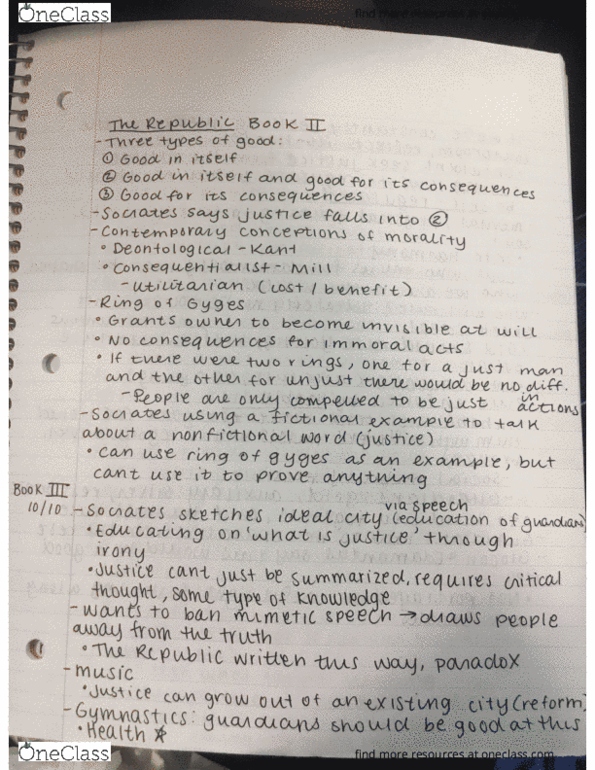 OneClass
find more resources at oneclass.com
The Republic Book II
- Three types of good:
① Good in itself
② Good in itself and good for its consequences
③ Good for its consequences
- Socrates says justice falls into ②
- Contemporary conceptions of morality
• Deontological - Kant
• Consequentialist - Mill
- Utilitarian (cost / benefit)
- Ring of Gyges
• Grants owner to become invisible at will
• No consequences for immoral acts
• If there were two rings, one for a just man
and the other for unjust there would be no diff. in actions
- People are only compelled to be just
- Socrates using a fictional example to talk
about a nonfictional word (justice)
• Can use ring of gyges as an example, but
cant use it to prove anything
Book III
10/10 - Socrates sketches ideal city via speech (education of guardian)
• Educating on 'what is justice' through
irony
• Justice cant just be summarized, requires critical
thought, some type of knowledge
- wants to ban mimetic speech → draws people
away from the truth
• The Republic written this way, paradox
- music
• Justice can grow out of an existing city (reform)
- Gymnastics: guardians should be good at this
• Health ☆
OneClass
find more resources at oneclass.com